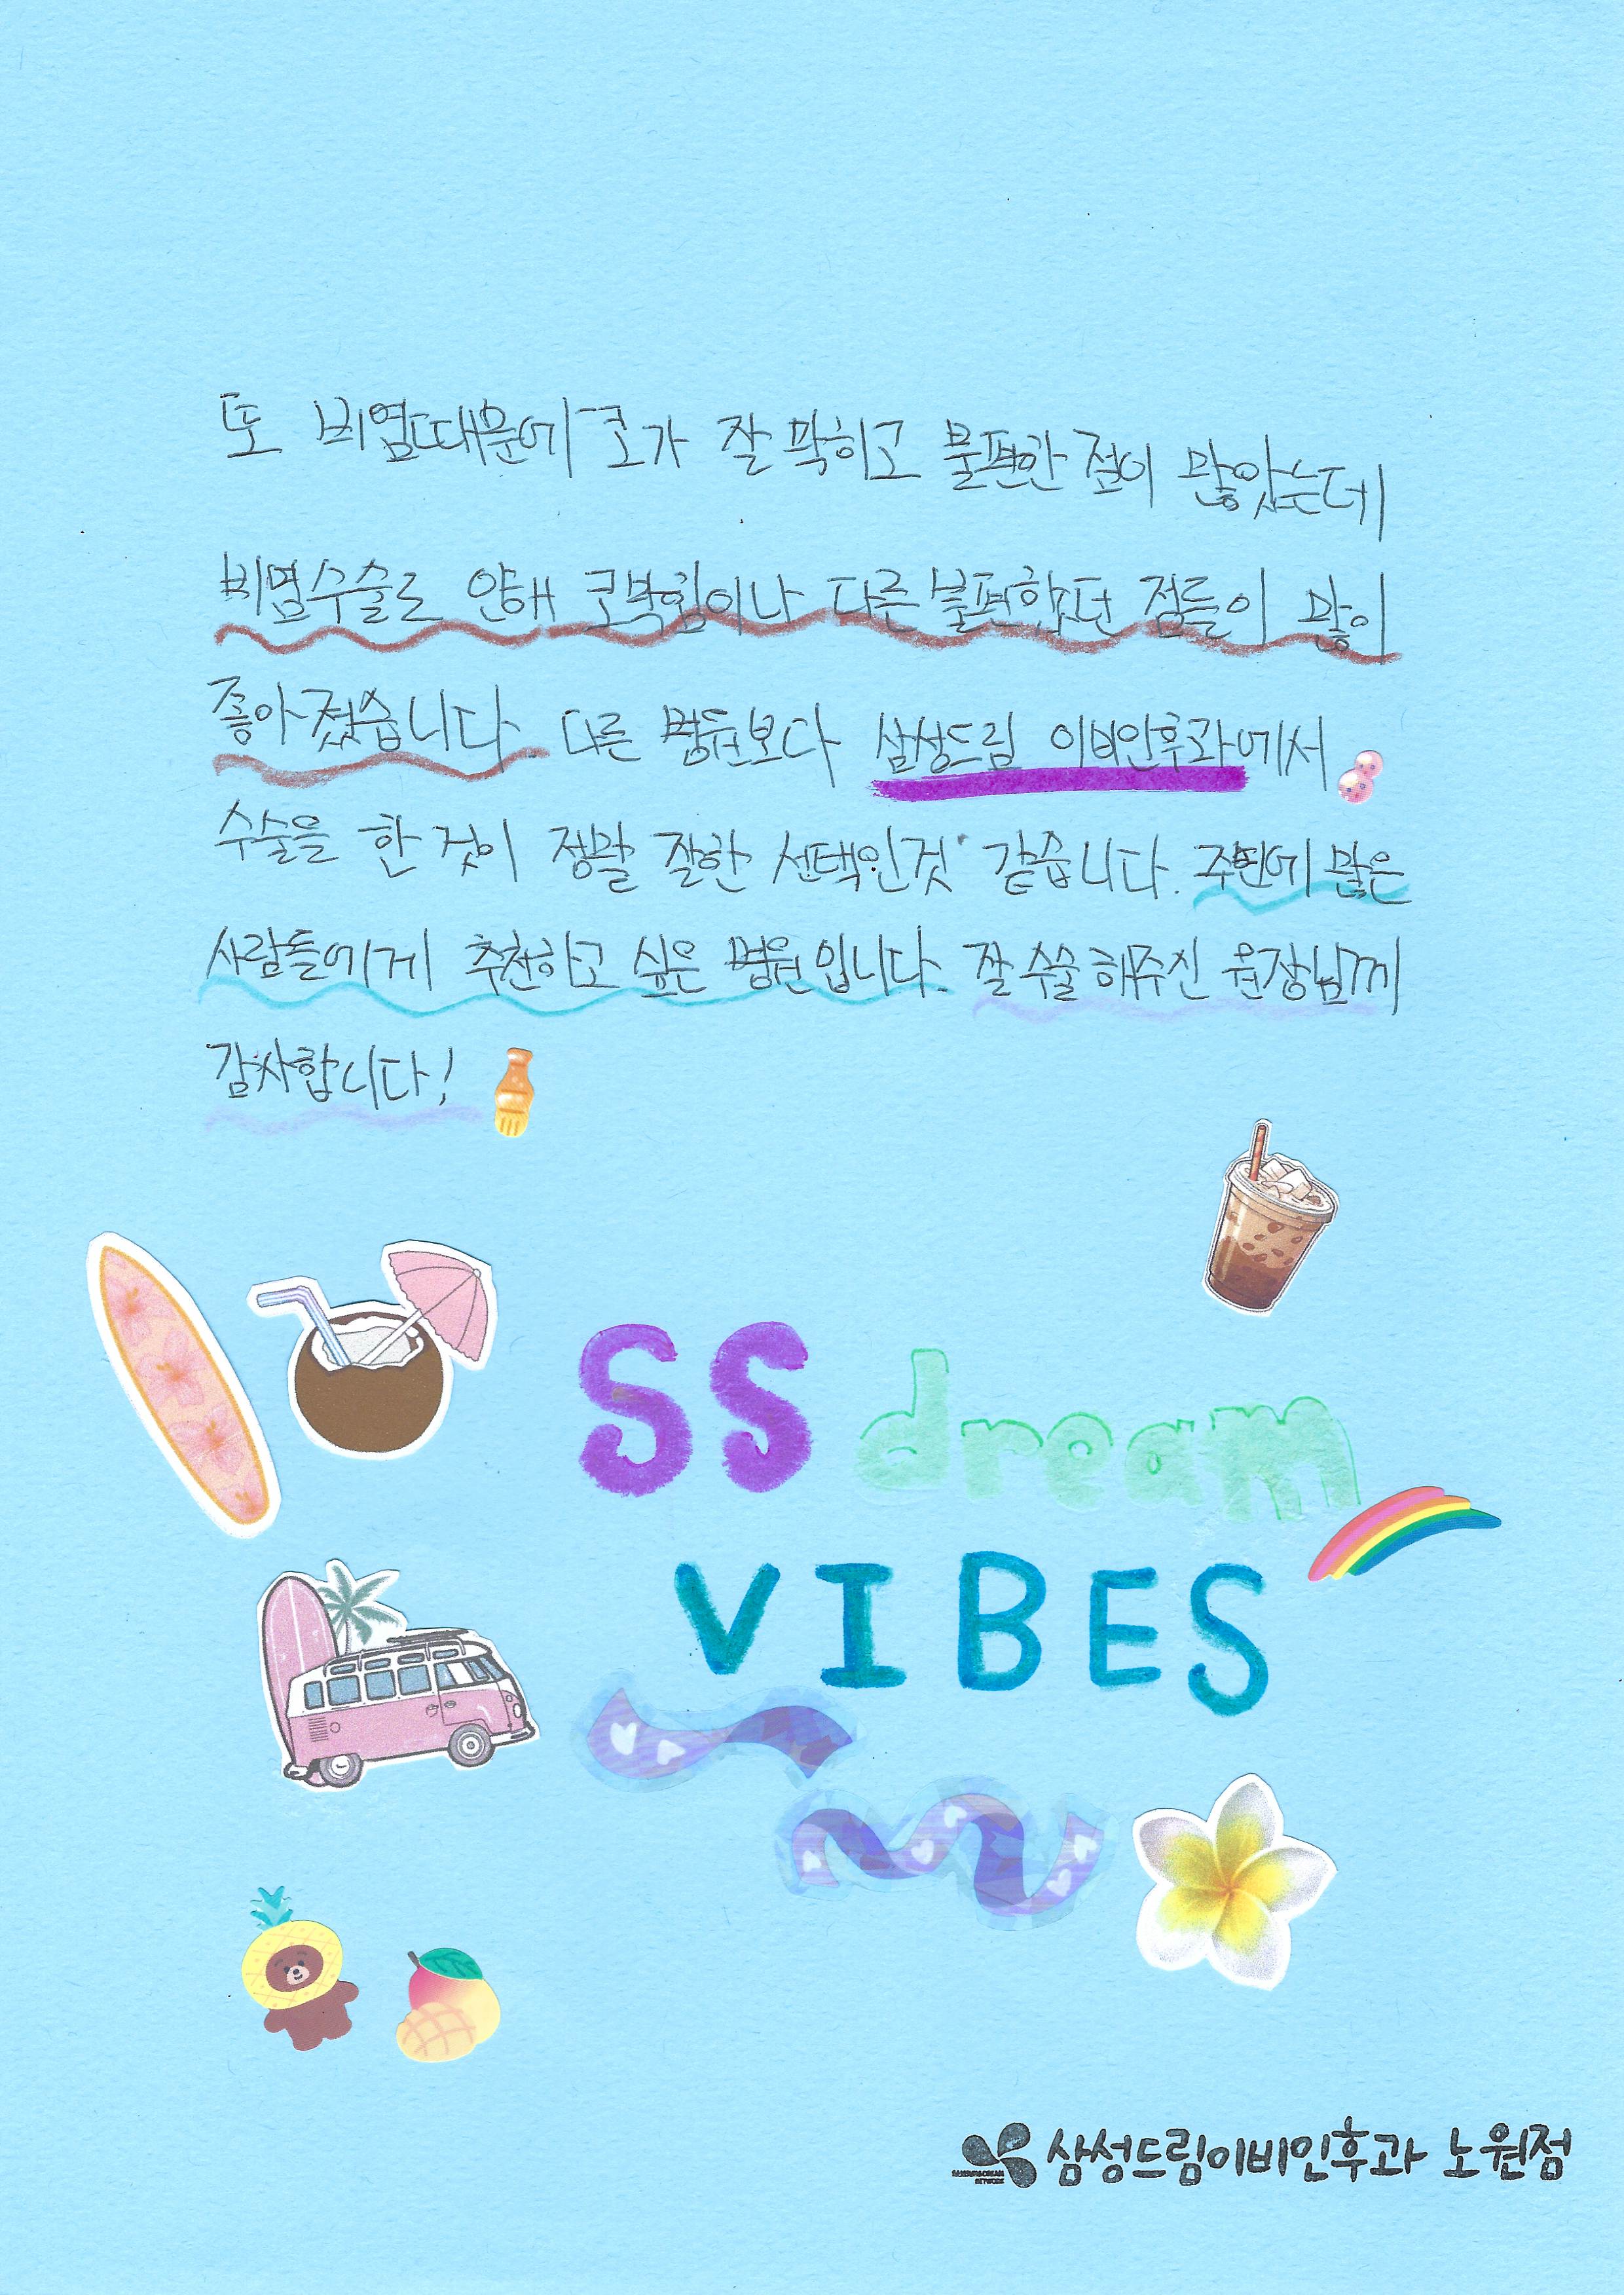 또 비염때문에 코가 잘 막히고 불편한 점이 많았는데
비염수술로 인해 코막힘이나 다른 불편했던 점들이 많이
좋아졌습니다. 다른 병원보다 삼성드림 이비인후과에서
수술을 한 것이 정말 잘한 선택인것 같습니다. 주변에 많은
사람들에게 추천하고 싶은 병원입니다. 잘 수술해주신 원장님께
감사합니다!
SS dream
VIBES
삼성드림이비인후과 노원점